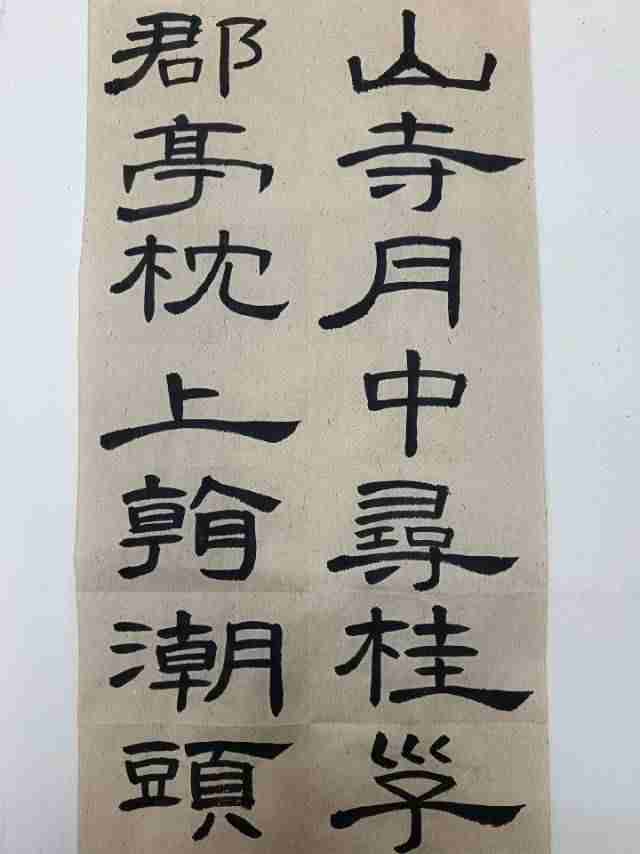 山寺月中尋桂子
郡亭枕上看潮頭